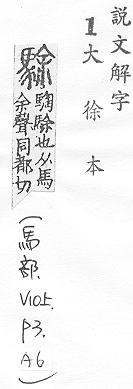 説文解字
1大徐本
駼
騊駼也从馬
余聲同都切
(馬部. V10上. P3. A6)